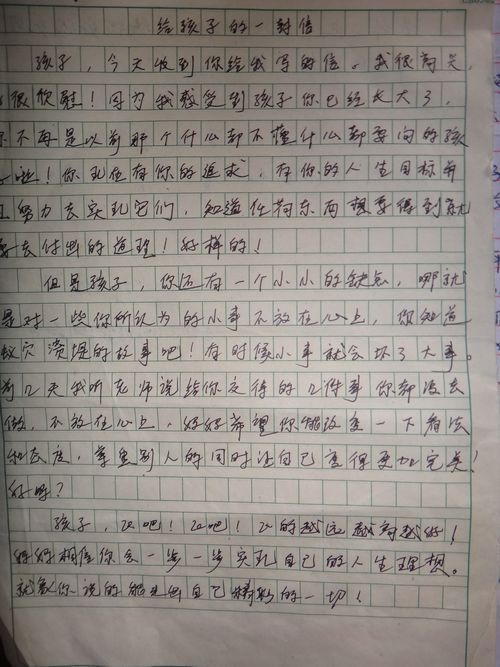 给孩子的一封信
孩子，今天收到你给我写的信。我很高兴，
很欣慰！因为我感受到孩子你已经长大了，
你不再是以前那个什么都不懂什么都要问的孩
子啦！你现在有你的追求，有你的人生目标并
且努力去实现它们，知道任何东西想要得到就
要去付出的道理！好样的！
但是孩子，你还有一个小小的缺点，哪就
是对一些你所认为的小事不放在心上，你知道
蚁穴溃堤的故事吧！有时候小事就会坏了大事。
前几天我听老师说给你交待的几件事你都没去
做，不放在心上，妈妈希望你能改变一下看法
和态度，尊重别人的同时让自己变得更加完美！
好吗？
孩子，飞吧！飞吧！飞的越远越高越好！
妈妈相信你会一步一步实现自己的人生理想。
就象你说的能走出自己精彩的一切！